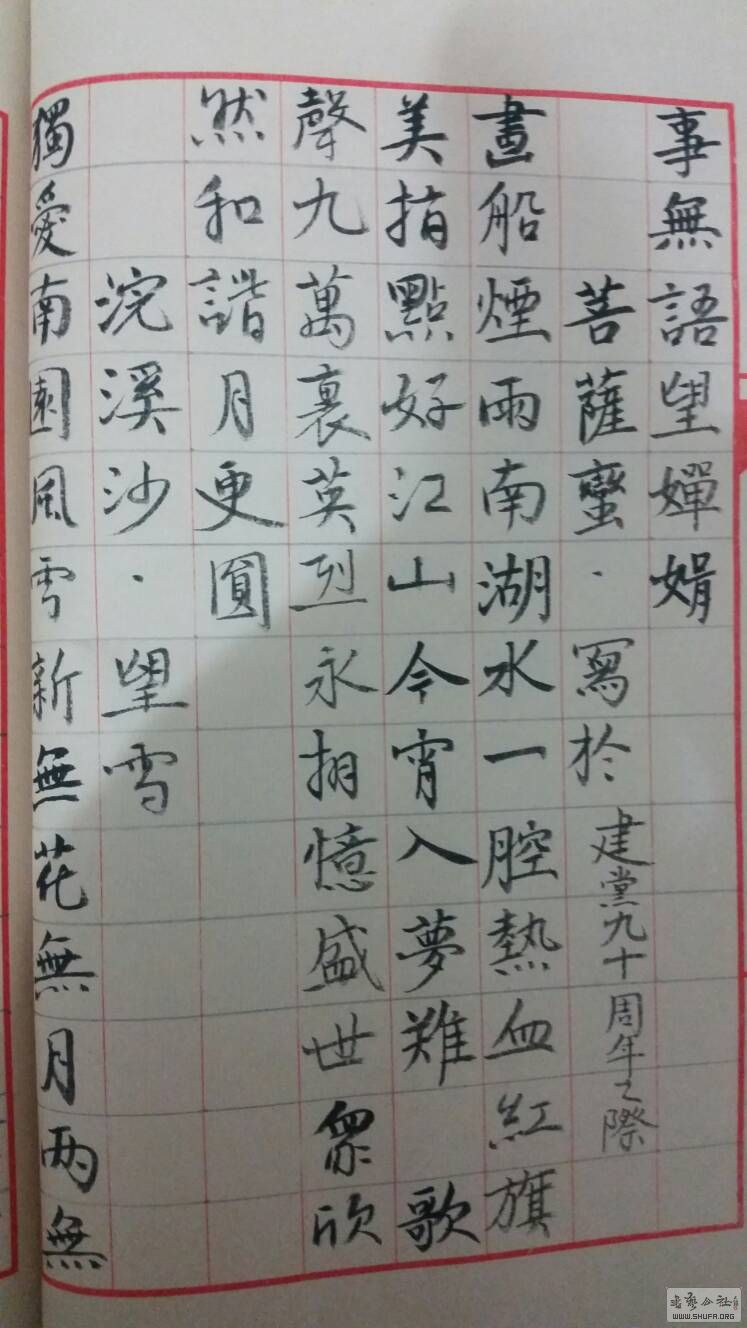 事無語望嬋娟
菩薩蠻·寫於建黨九十周年之際
畫船煙雨南湖水一腔熱血紅旗
美指點好江山今宵入夢難 歌
聲九萬裏英烈永相憶盛世眾欣
然和諧月更圓
浣溪沙·望雪
獨愛南園風雪新無花無月兩無
WWW.SHUFA.ORG